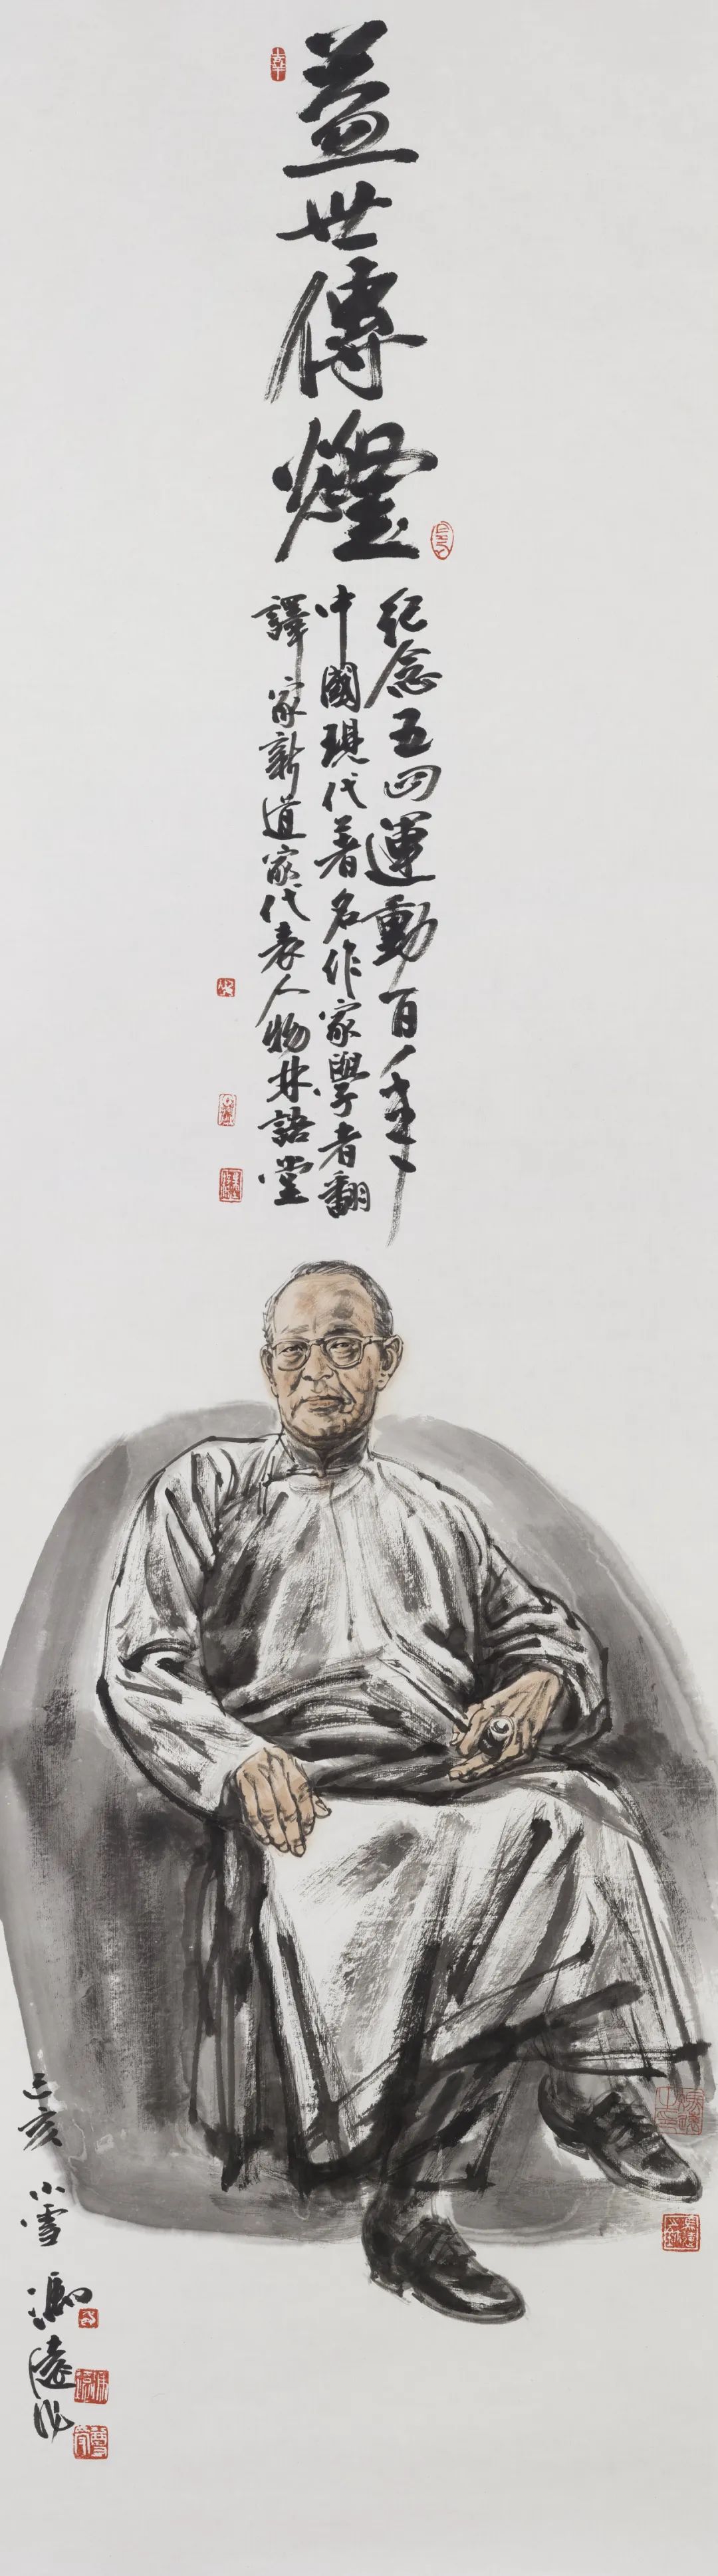 蓋世傳燈
紀念五四運動百年
中國現代著名作家學者翻
譯家新道家代表人物林語堂
己亥
小雪
馮遠